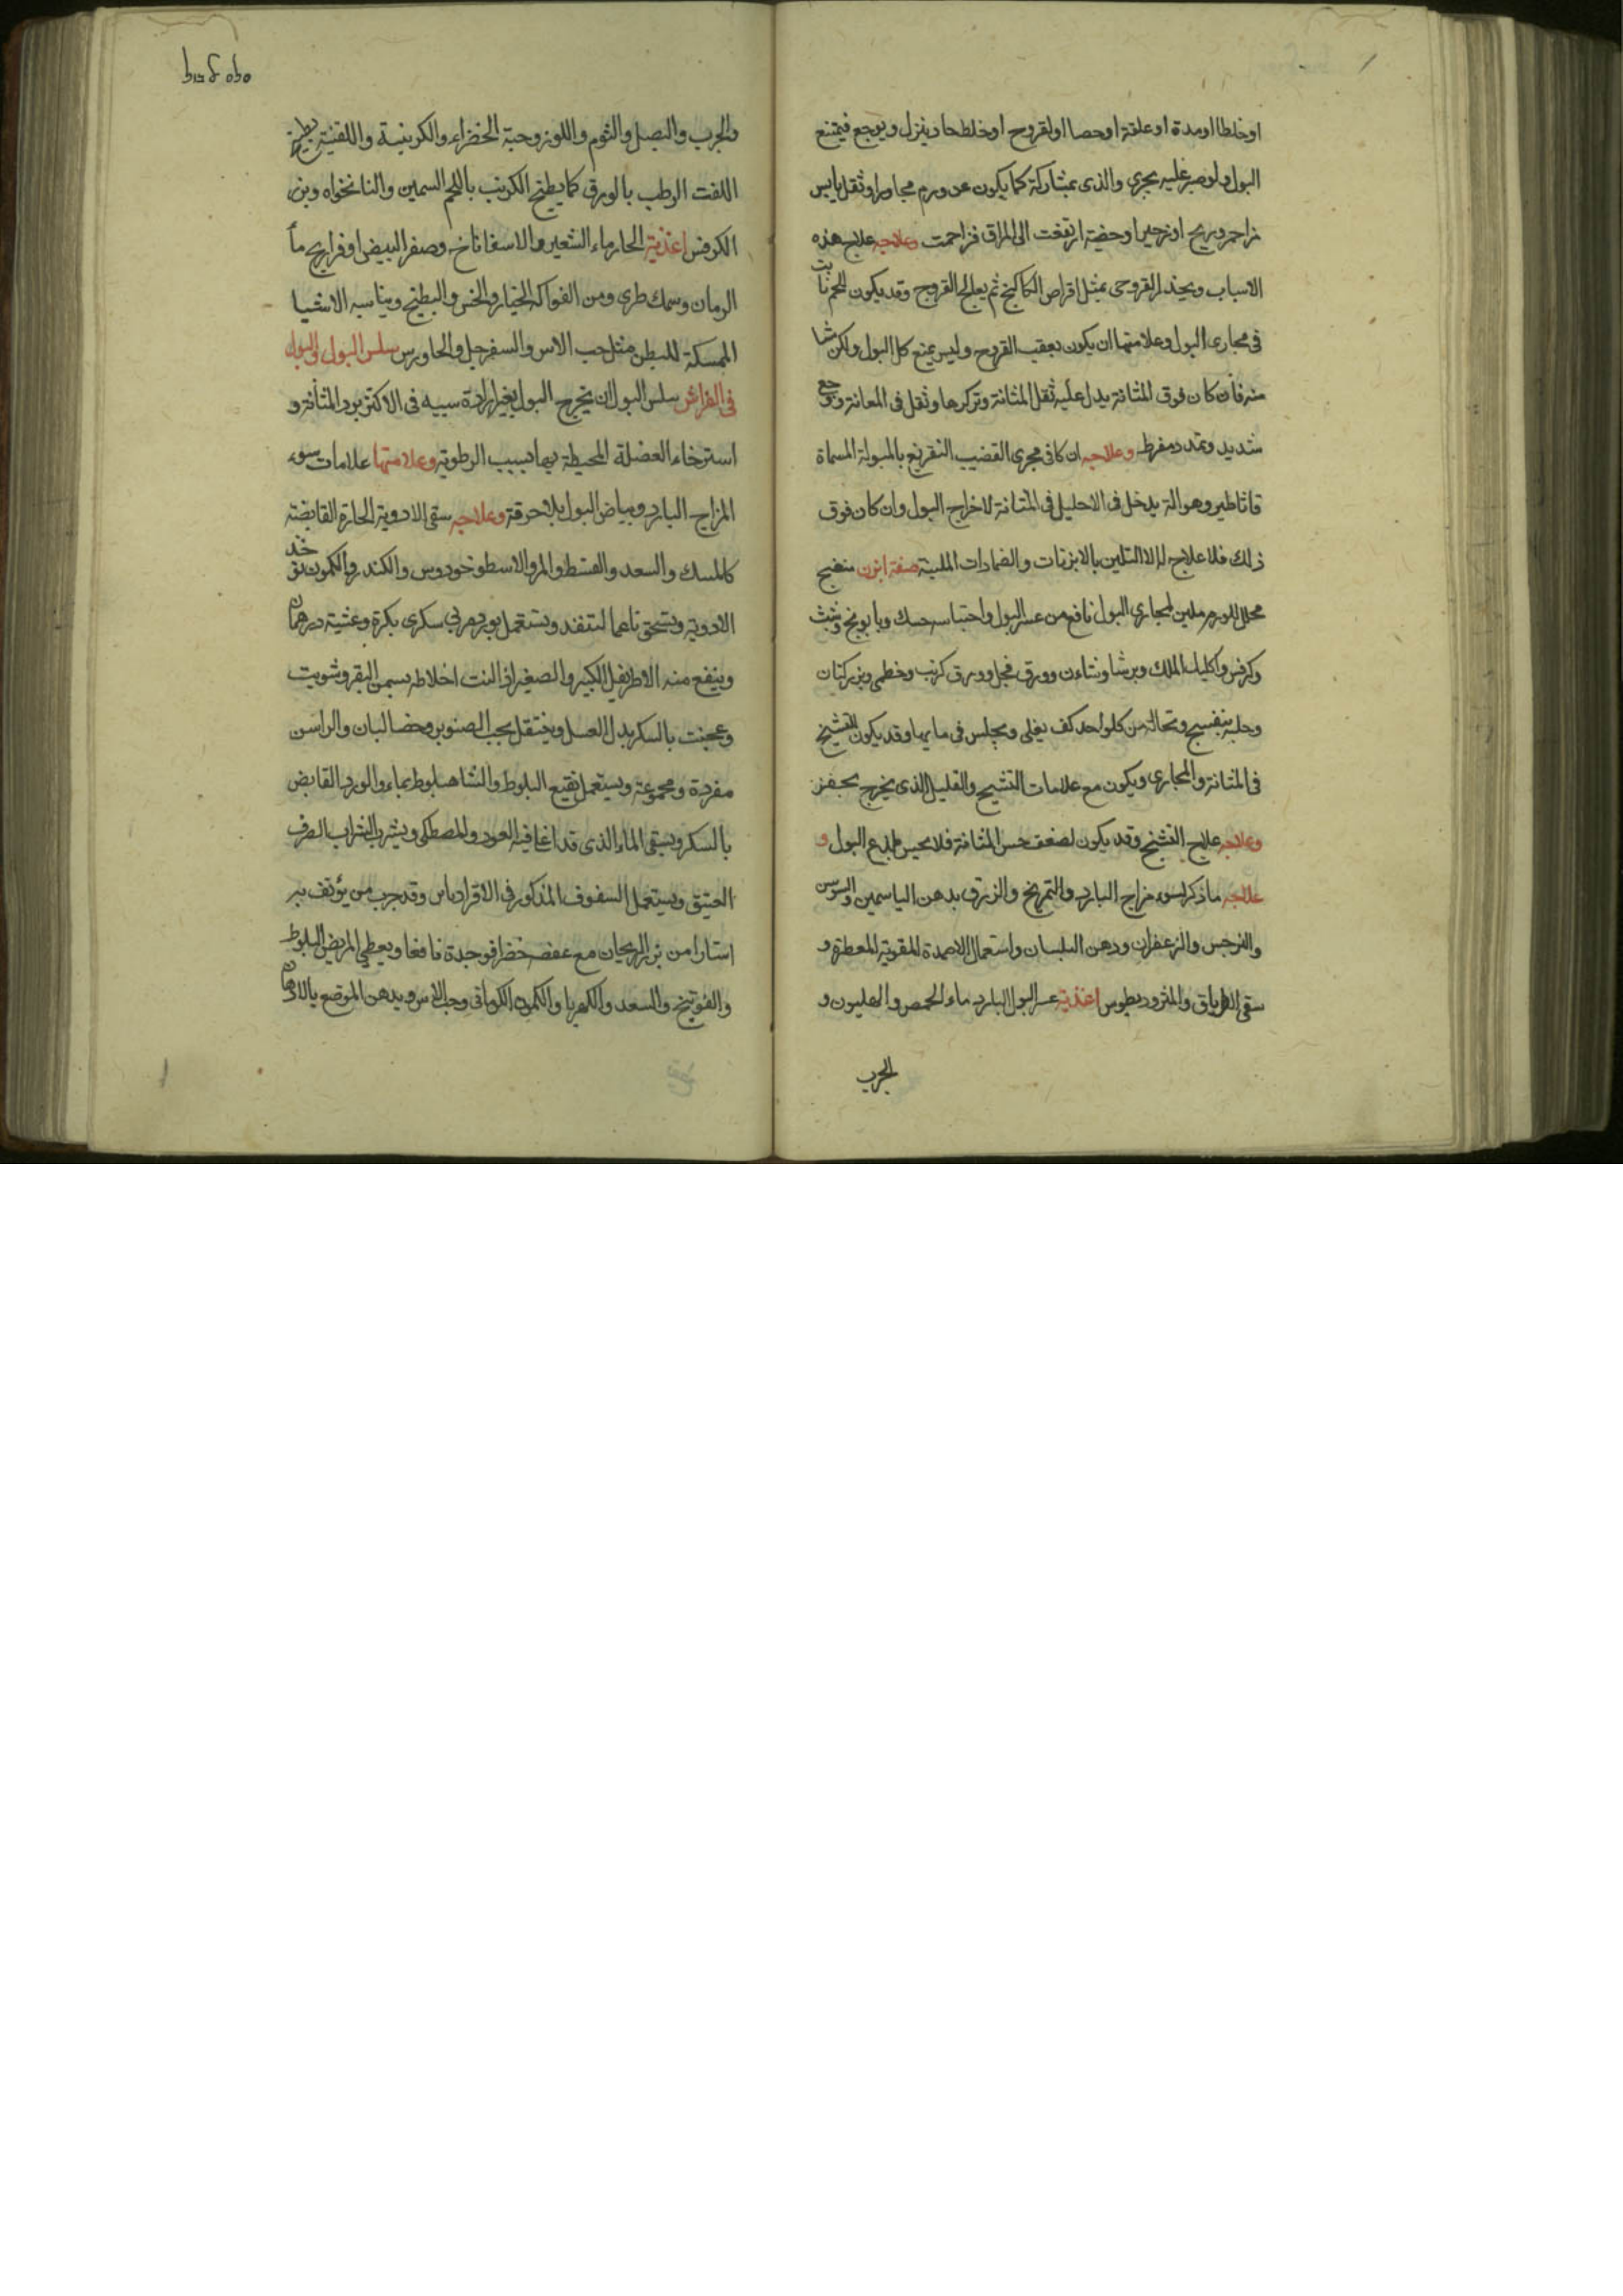 او خلطا او مدة او علقة او حصا او لقروح او خلط حاد ينزل ويوجع فيمتنع
البول ولو صبر عليه يجري والذي بمشاركة كما يكون عن ورم مجاور او ثقل يابس
مزاحم وريح او زحير او خصية ارتفعت الى المراق فزاحمت وعلاجه علاج هذه
الاسباب ويخدر القروحى بمثل اقراص الكاكنج ثم يعالج القروح وقد يكون للحم نابت
فى مجارى البول وعلامتها ان يكون بعقب القروح وليس يمنع كل البول ولكن شا
منه فان كان فوق المثانة يدل عليه ثقل المثانة وتركزها وثقل فى العانة ووجع
شديد وتمدد مفرط وعلاجه ان كا فى مجرى القضيب التفريغ بالمبولة المسماة
قاثاطير وهو الة يدخل فى الاحليل فى المثانة لاخراج البول وان كان فوق
ذلك فلا علاج الا التلين بالابزنات والضمادات الملينة صفة ابزن منضج
محلل للورم ملين لمجارى البول نافع من عسر البول واحتباسه حسك وبابونج وشبث
وكرفس واكليل الملك وبرشاوشان وورق فجل وورق كرنب وخطمى وبزر كتان
وحلبة بنفسج ونخالة من كل واحد كف يغلى ويجلس فى مايها وقد يكون لتشنج
فى المثانة والمجارى ويكون مع علامات التشنج والقليل الذى يخرج بحفز
وعلاجه علاج التشنج وقد يكون لضعف حس المثانة فلا يحس بلذع البول و
علاجه ما ذكر لسوء مزاج البارد والتمريخ والزرق بدهن الياسمين والسوسن
والنرجس والزعفران ودهن البلسان واستعمال الاضمدة المقوية المعطرة و
سقى الطرياق والمثروديطوس اغذية عسر البول البارد ماء الحمص والهليون و
الجرب
والجرب والبصل والثوم واللوز وحبة الخضراء والكرنبية واللفتية بطبخ
اللفت الرطب بالورق كما يطبخ الكرنب باللحم السمين والنانخواه وبزر
الكرفس اغذية الحار ماء الشعير والاسفاناخ وصفر البيض او فراريج بما
الرمان وسمك طرى ومن الفواكه الخيار والخس والبطيخ ويناسبه الاشيا
الممسكة للبطن مثل حب الاس والسفرجل والجاورس سلس البول والبول
فى الفراش سلس البول ان يخرج البول بغير ارادة سببه فى الاكثر برد المثانة و
استرخاء العضلة المحيطة بها بسبب الرطوبة وعلامتها علامات سوء
المزاج البارد وبياض البول بلا حرقة وعلاجه سقى الادوية الحارة القابضة
كالمسك والسعد والقسط والمر والاسطوخودوس والكندر والكمون تدق
الادوية وتسحق ناعما لتنفذ ويستعمل بورد مربى سكرى بكرة وعشية درهمان
وينفع منه الاطريفل الكبير والصغير اذا لتت اخلاطه بسمن البقر وشويت
وعجنت بالسكر بدل العسل ويتنقل بحب الصنوبر وخصا لبان والراسن
مفردة ومجموعة ويستعمل نقيع البلوط والشاهبلوط بماء والورد القابض
بالسكر ويسقى الماء الذى قد اغلى فيه العود والمصطكى ويشرب الشراب الصرف
العتيق ويستعمل السفوف المذكور فى الاقراباذين وقد جرب من يوثق به
استارا من بزر الريحان مع عفصه خضرا فوجدة نافعا ويعطى المريض البلوط
والفوتنج والسعد والكهربا والكمون الكرمانى وحب الاس ويدهن الموضع بالادهان